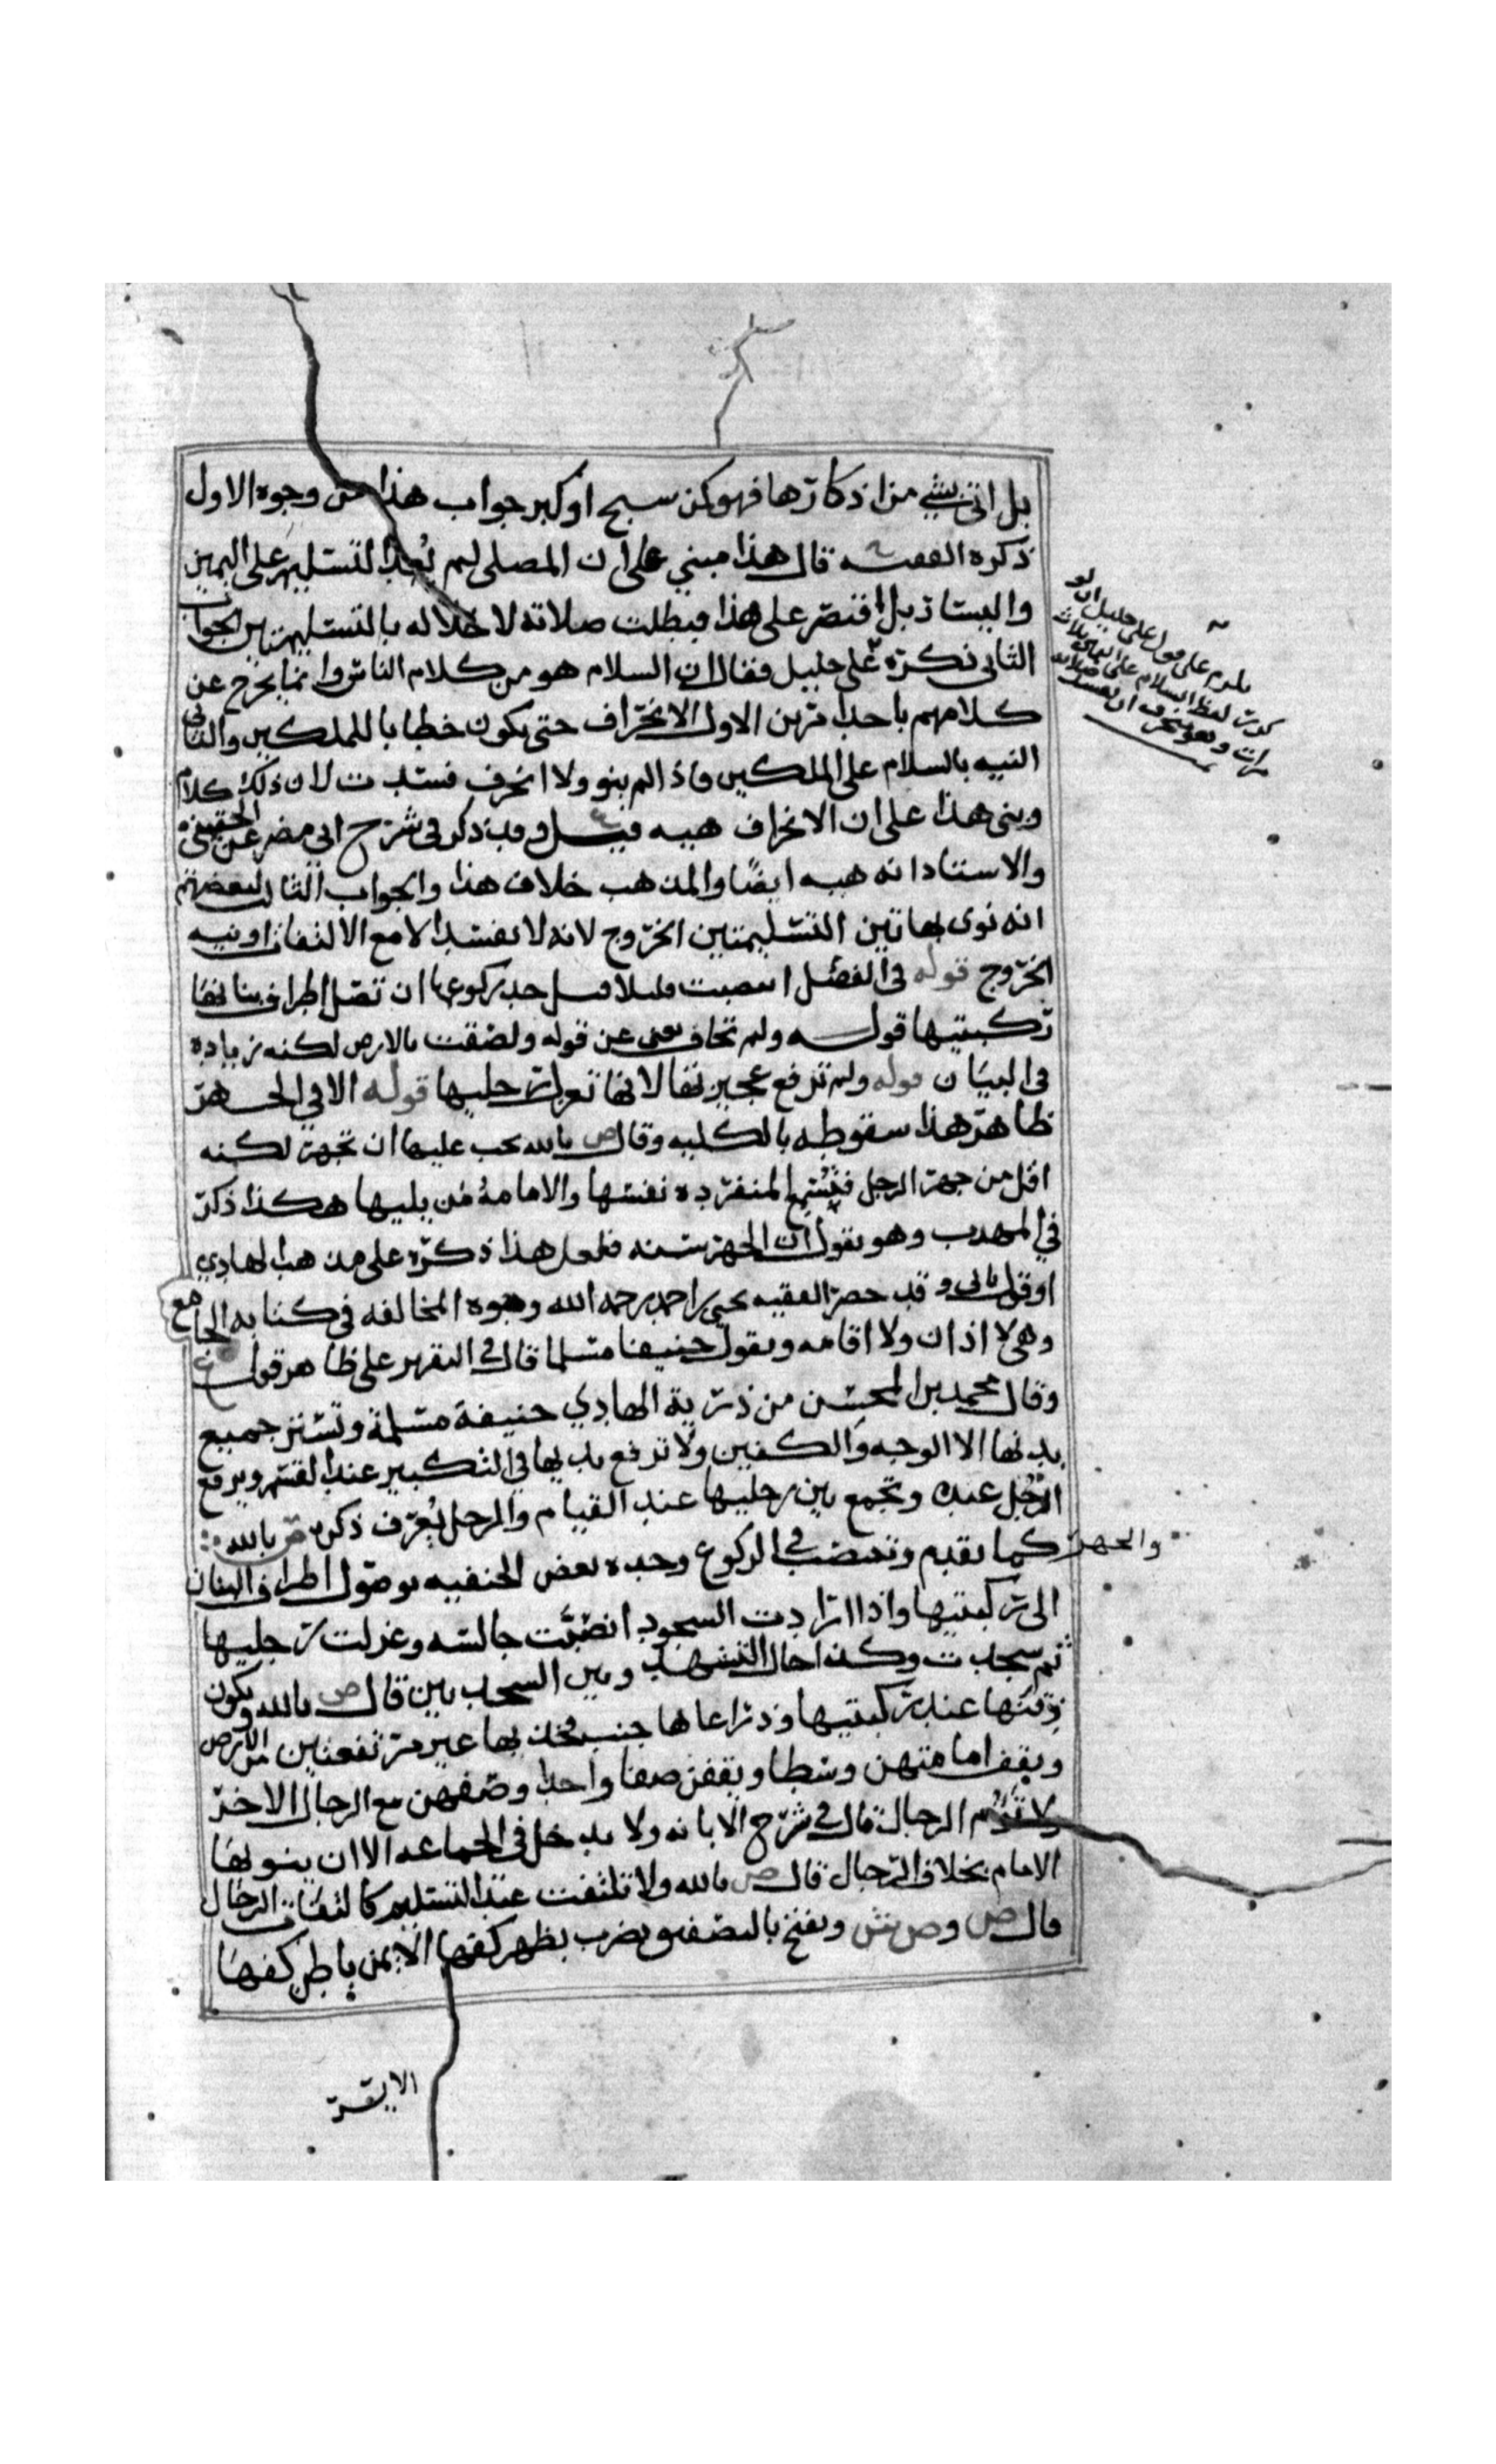 بل اتى بشي من اذكارها فهو كمن سبح او كبر جواب هذا من وجوه الاول
ذكره الفقيه قال هذا مبني على ان المصلي لم يُعد التسليم على اليمين
واليسار بل اقتصر على هذا فبطلت صلاته لاخلاله بالتسليمتين الجواب
الثاني ذكره علي خليل فقال ان السلام هو من كلام الناس وانما يخرج عن
كلامهم باحد امرين الاول الانحراف حتى يكون خطابا للملكين والثاني
النيه بالسلام على الملكين فاذا لم ينو ولا انحرف فسدت لان ذلك كلام
وبنى هذا على ان الانحراف هيه وقد ذكر في شرح ابي مضر عن الحقيني
والاستاذ انه هيه ايضًا والمذهب خلاف هذا والجواب الثالث لبعضهم
انه نوى بهاتين التسليمتين الخروج لانه لا تفسد الا مع الالتفات او نيه
الخروج قوله في الفصل انتصبت قليلا قبل حد ركوعها ان تصل اطراف بنانها
ركبتيها قوله ولم تجاف يغني عن قوله ولصقت بالارض لكنه زياده
في البيان قوله ولم ترفع عجيزتها لانها تعزل رجليها قوله الا في الجهر
ظاهر هذا سقوطه بالكليه وقال ص بالله يجب عليها ان تجهر لكنه
اقل من جهر الرجل فتُسمع المنفرده نفسها والامامهُ من يليها هكذا ذكر
في المهذب وهو يقول ان الجهر سنه فلعل هذا ذكره على مذهب الهادي
او قول ثاني وقد حصر الفقيه يحيى بن احمد رحمه الله وجوه المخالفه في كتابه الجامع
وهي لا اذان ولا اقامه وبقول حنيفا مسلما قال في التقرير على ظاهر قول
وقال محمد بن المحسن من ذرية الهادي حنيفة مسلمة وتستر جميع
بدنها الا الوجه والكفين ولا ترفع يديها في التكبير عند القسم ويرفع
الرجُل عنده وتجمع بين رجليها عند القيام والرجل يُعرف ذكره ص بالله
والجهر كما تقدم وتنتصب في الركوع وحده بعض الحنفيه بوصول اطراف البنان
الى ركبتيها واذا ارادت السجود انتصبت جالسه وعزلت رجليها
ثم سجدت وكذا حال التشهد وبين السجدتين قال ص بالله ويكون
ذقنها عند ركبتيها وذراعاها جنب فخذيها غير مرتفعتين من الارض
ويقف امامتهن وسطا ويقفن صفا واحدا وصفهن مع الرجال الاخر
ولا تؤم الرجال قال في شرح الابانه ولا يدخل في الجماعه الا ان ينويها
الامام بخلاف الرجال قال ص بالله ولا تلتفت عند التسليم كالتفات الرجال
قال ص وص ش وتفتح بالتصفيق بضرب بظهر كفها الايمن باطن كفها
الايسر
يلزم على قول علي خليل ان لو
كررت لفظ السلام على الملائكه ثلاث
مرات ولم ينحرف ان تفسد صلاته